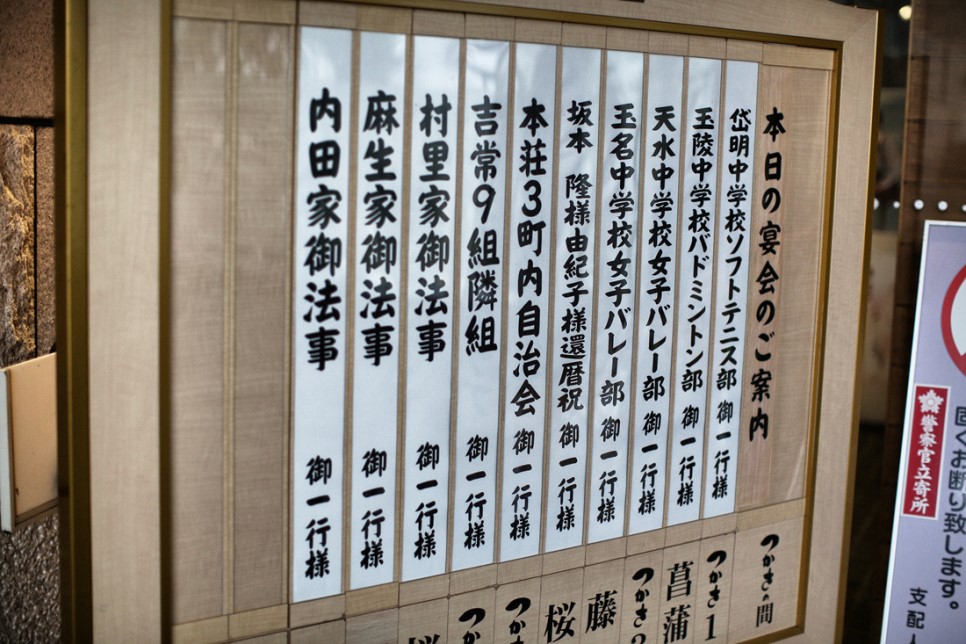 本日の宴会のご案内
岱明中学校ソフトテニス部 御一行様
玉陵中学校バドミントン部 御一行様
天水中学校女子バレー部 御一行様
玉名中学校女子バレー部 御一行様
坂本 隆様由紀子様還暦祝 御一行様
本荘3町内自治会 御一行様
吉常9組隣組 御一行様
村里家御法事 御一行様
麻生家御法事 御一行様
内田家御法事 御一行様
つかさの間
つかさ1
菖蒲
つかさ
藤
桜
つかさ
つかさ
固くお断り致します。
支配人
警察官立寄所